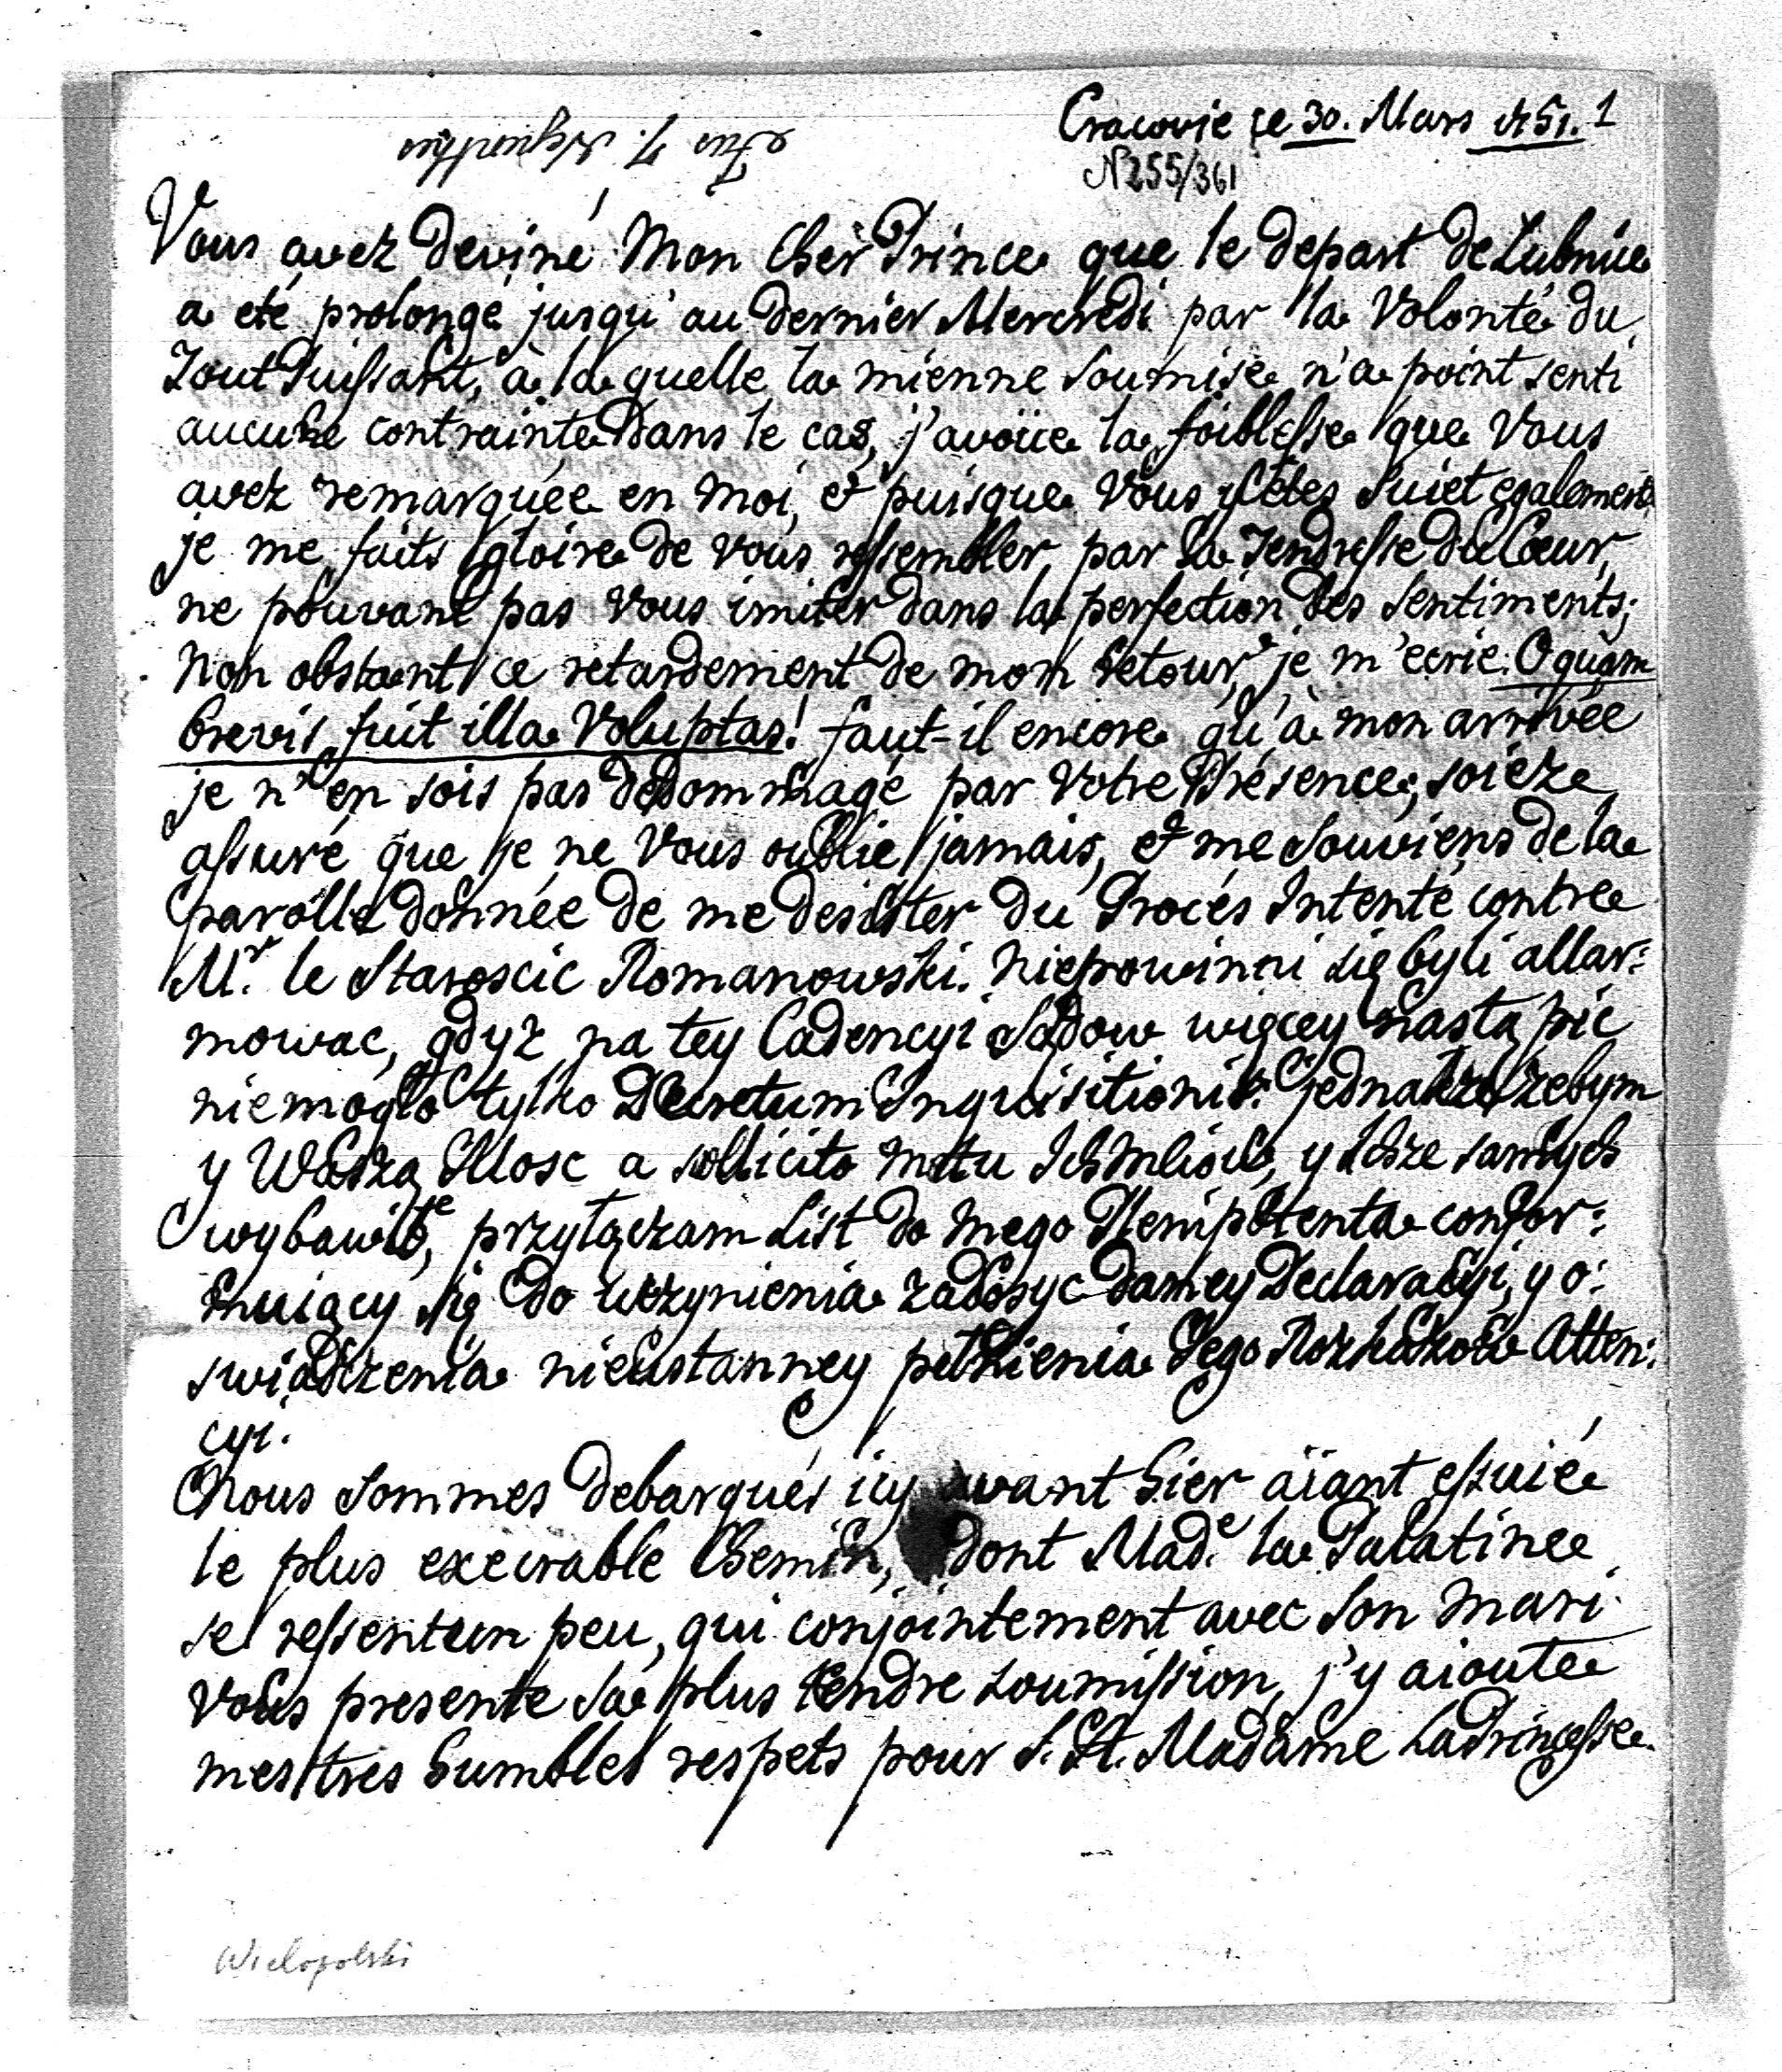 Cracovie ce 30. Mars 1751. 1
N 255/361
Vous avez deviné Mon Cher Prince que le depart de Lubnice
a eté prolongé jusqu'au dernier Mercredi par la Volonté du
Tout Puissant, à la quelle la mienne soumise n'a point senti
aucune contrainte dans le cas, j'avoüe la foiblesse que Vous
avez remarquée en moi, et puisque Vous y êtes suiet egalement,
je me faits gloire de vous ressembler par la Tendresse du Cœur,
ne pouvant pas vous imiter dans la perfection des sentiments;
Non obstant ce retardement de mon retour, je m'ecrie: O quam
brevis fuit illa Voluptas! faut-il encore qu'à mon arrivée
je n'en sois pas dedommagé par Votre Présence; soieze
assuré que je ne Vous oublie jamais, et me souviens de la
parolle donnée de me desister du Procés Intenté contre
Mr. le Staroscic Romanowski. Niepowinni się byli allar:
mowac, gdyż na tey Cadencyi Sądow więcey nastąpić
niemogło tylko Decretum Inquisitionis: jednakże żebym
y Waszą Miłosc a sollicito metu y Ichże samych
wybawił, przyłączam List do mego Plenipotenta confor:
muiący się do uczynienia zadosyc daney Declaracyi, y o:
swiadczenia nieustanney pełnienia Jego Rozkazow Atten:
cyi.
Nous sommes debarqués icy avant hier aïant essuiée
le plus execrable Chemin, dont Made. la Palatine
se ressent un peu, qui conjointement avec son mari
vous presente sa plus tendre soumission, j'y aioute
mes tres humbles respets pour S. A. Madame La Princesse.
Wielopolski